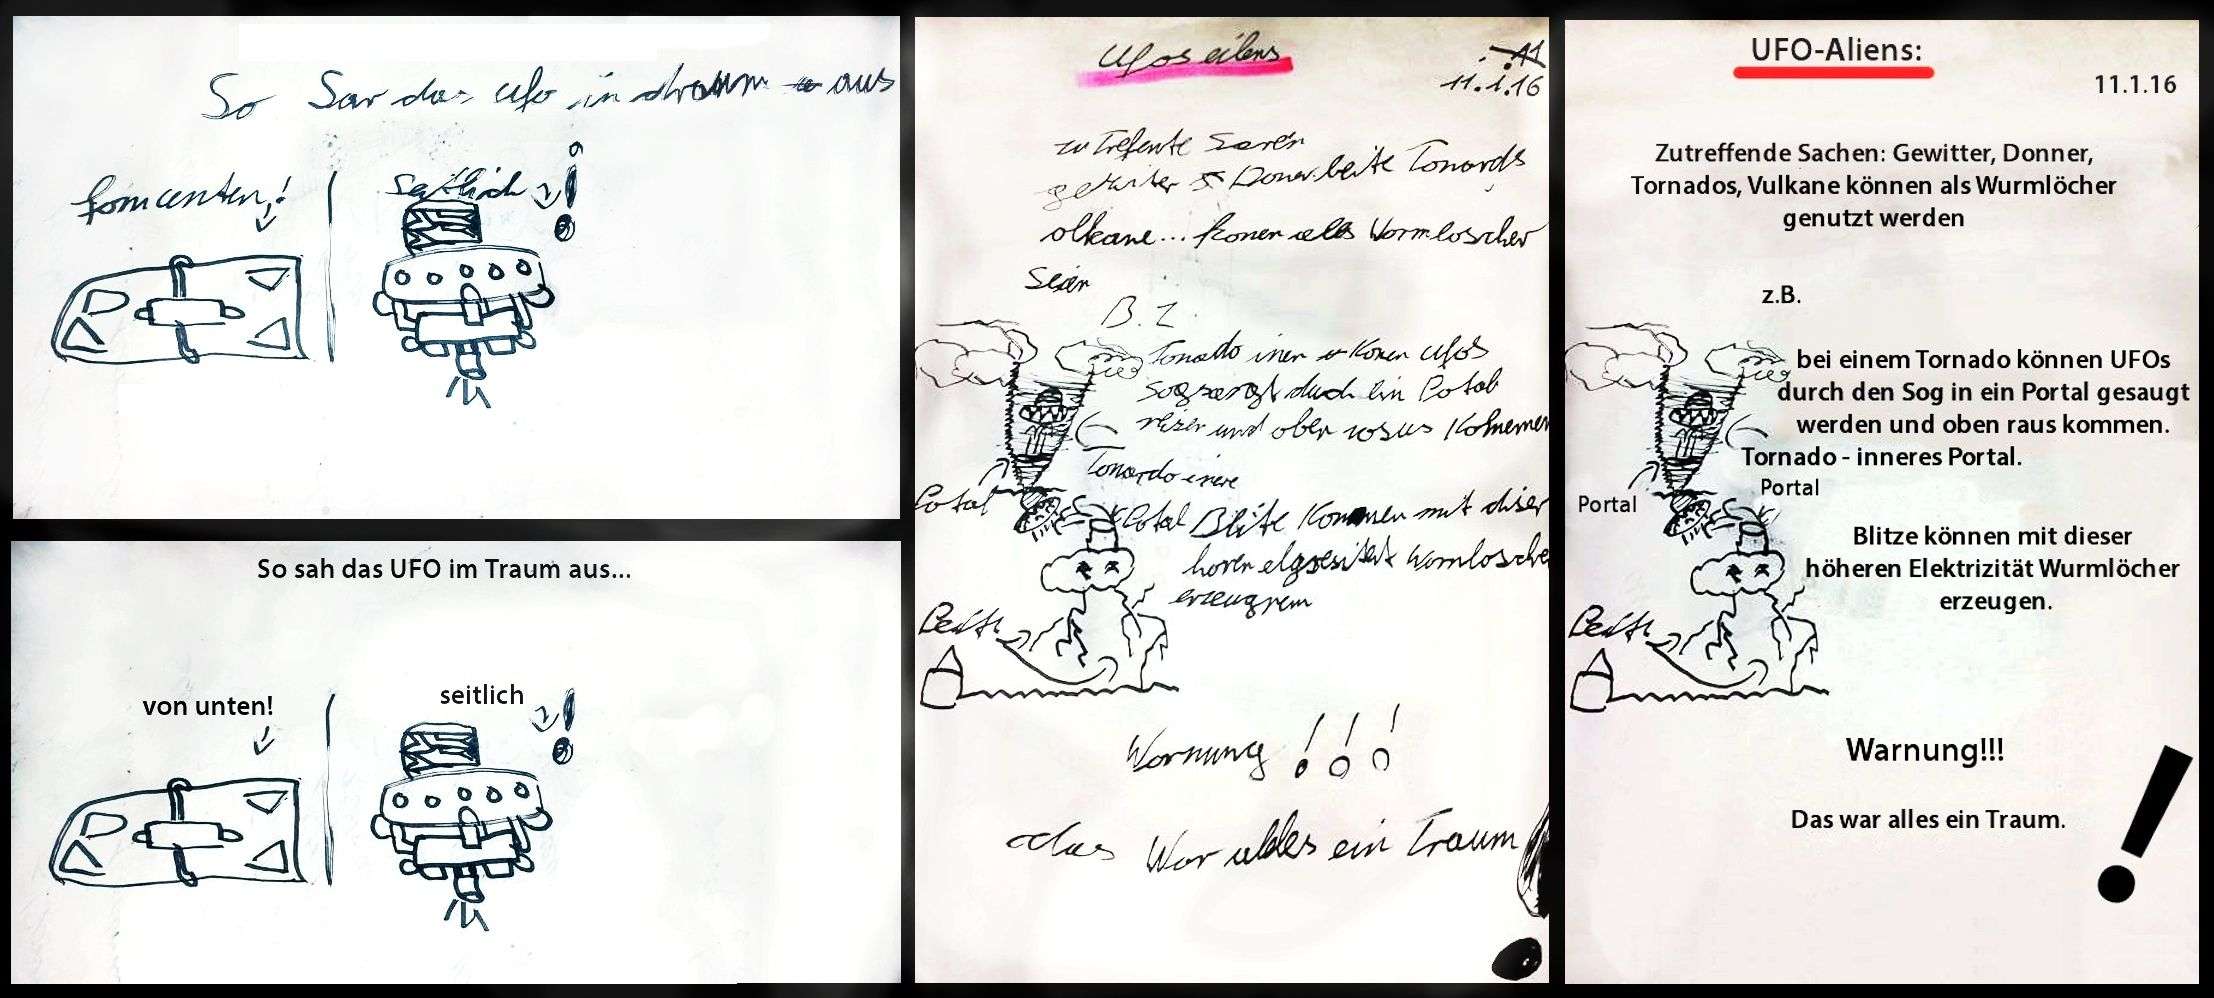 So Sar das ufo in draum aus
fomcunten!
seitlich
So sah das UFO im Traum aus...
von unten!
seitlich
Ufos eilens
11.1.16
zu Trefente Saren
gewiter Doner beite Tonards
olkane... Konen als Wormloscher
Sein
B.Z.
Tonatdo inen Konen Ufos
durch ein Potal
und oben Kohmemen
Tonardo inere
Potal
Potal Blite Kommen mit diser
horen Wormlosche
erzeugrem
Wornung !!!
das War alles ein Traum
UFO-Aliens:
11.1.16
Zutreffende Sachen: Gewitter, Donner,
Tornados, Vulkane können als Wurmlöcher
genutzt werden
z.B.
bei einem Tornado können UFOs
durch den Sog in ein Portal gesaugt
werden und oben raus kommen.
Tornado - inneres Portal.
Portal
Portal
Blitze können mit dieser
höheren Elektrizität Wurmlöcher
erzeugen.
Warnung!!!
Das war alles ein Traum.
!